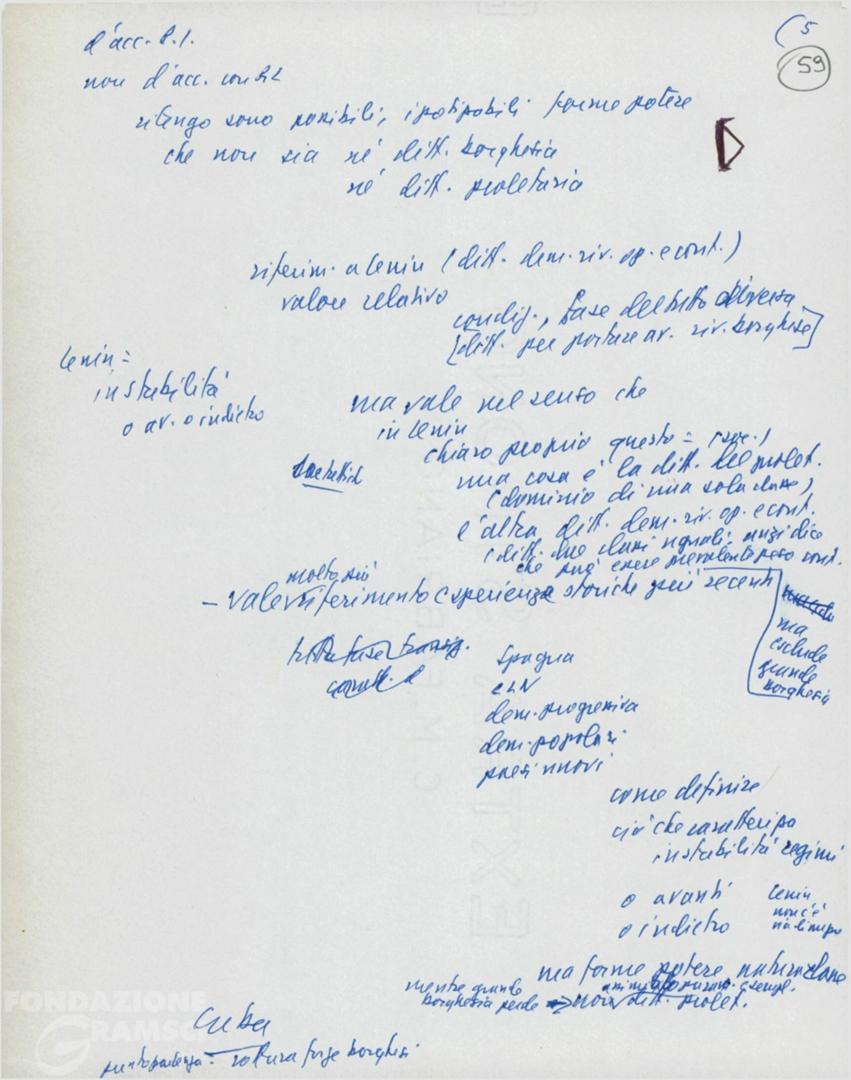 (5
59
d'acc. P.I.
non d'acc. con
ritengo sono possibili, ipotizzabili forme potere
che non sia né ditt. borghesia
né ditt. proletaria
riferim. a Lenin (ditt. dem. riv. op. e cont.)
valore relativo
condiz., fase del tutto diversa
[ditt. per portare av. riv. borghese]
Lenin =
instabilità
o av. o indietro
ma vale nel senso che
in Lenin
chiaro proprio questo =
una cosa è la ditt. del prolet.
(dominio di una sola classe)
è altra ditt. dem. riv. op. e cont.
(ditt. due classi uguali, anzi dice
che può essere prevalente peso cont.
molto più
- vale riferimento esperienze storiche più recenti
ma
esclude
grande
borghesia
tutta fase transiz.
Spagna
CLN
dem. progressiva
dem. popolari
paesi nuovi
come definire
ciò che caratterizza
instabilità regimi
o avanti
o indietro
Lenin
non c'è
ma forme potere, natura classe
mentre grande
borghesia perde
ditt. prolet.
Cuba
punto partenza = rottura forze borghesi
FONDAZIONE
GRAMSCI